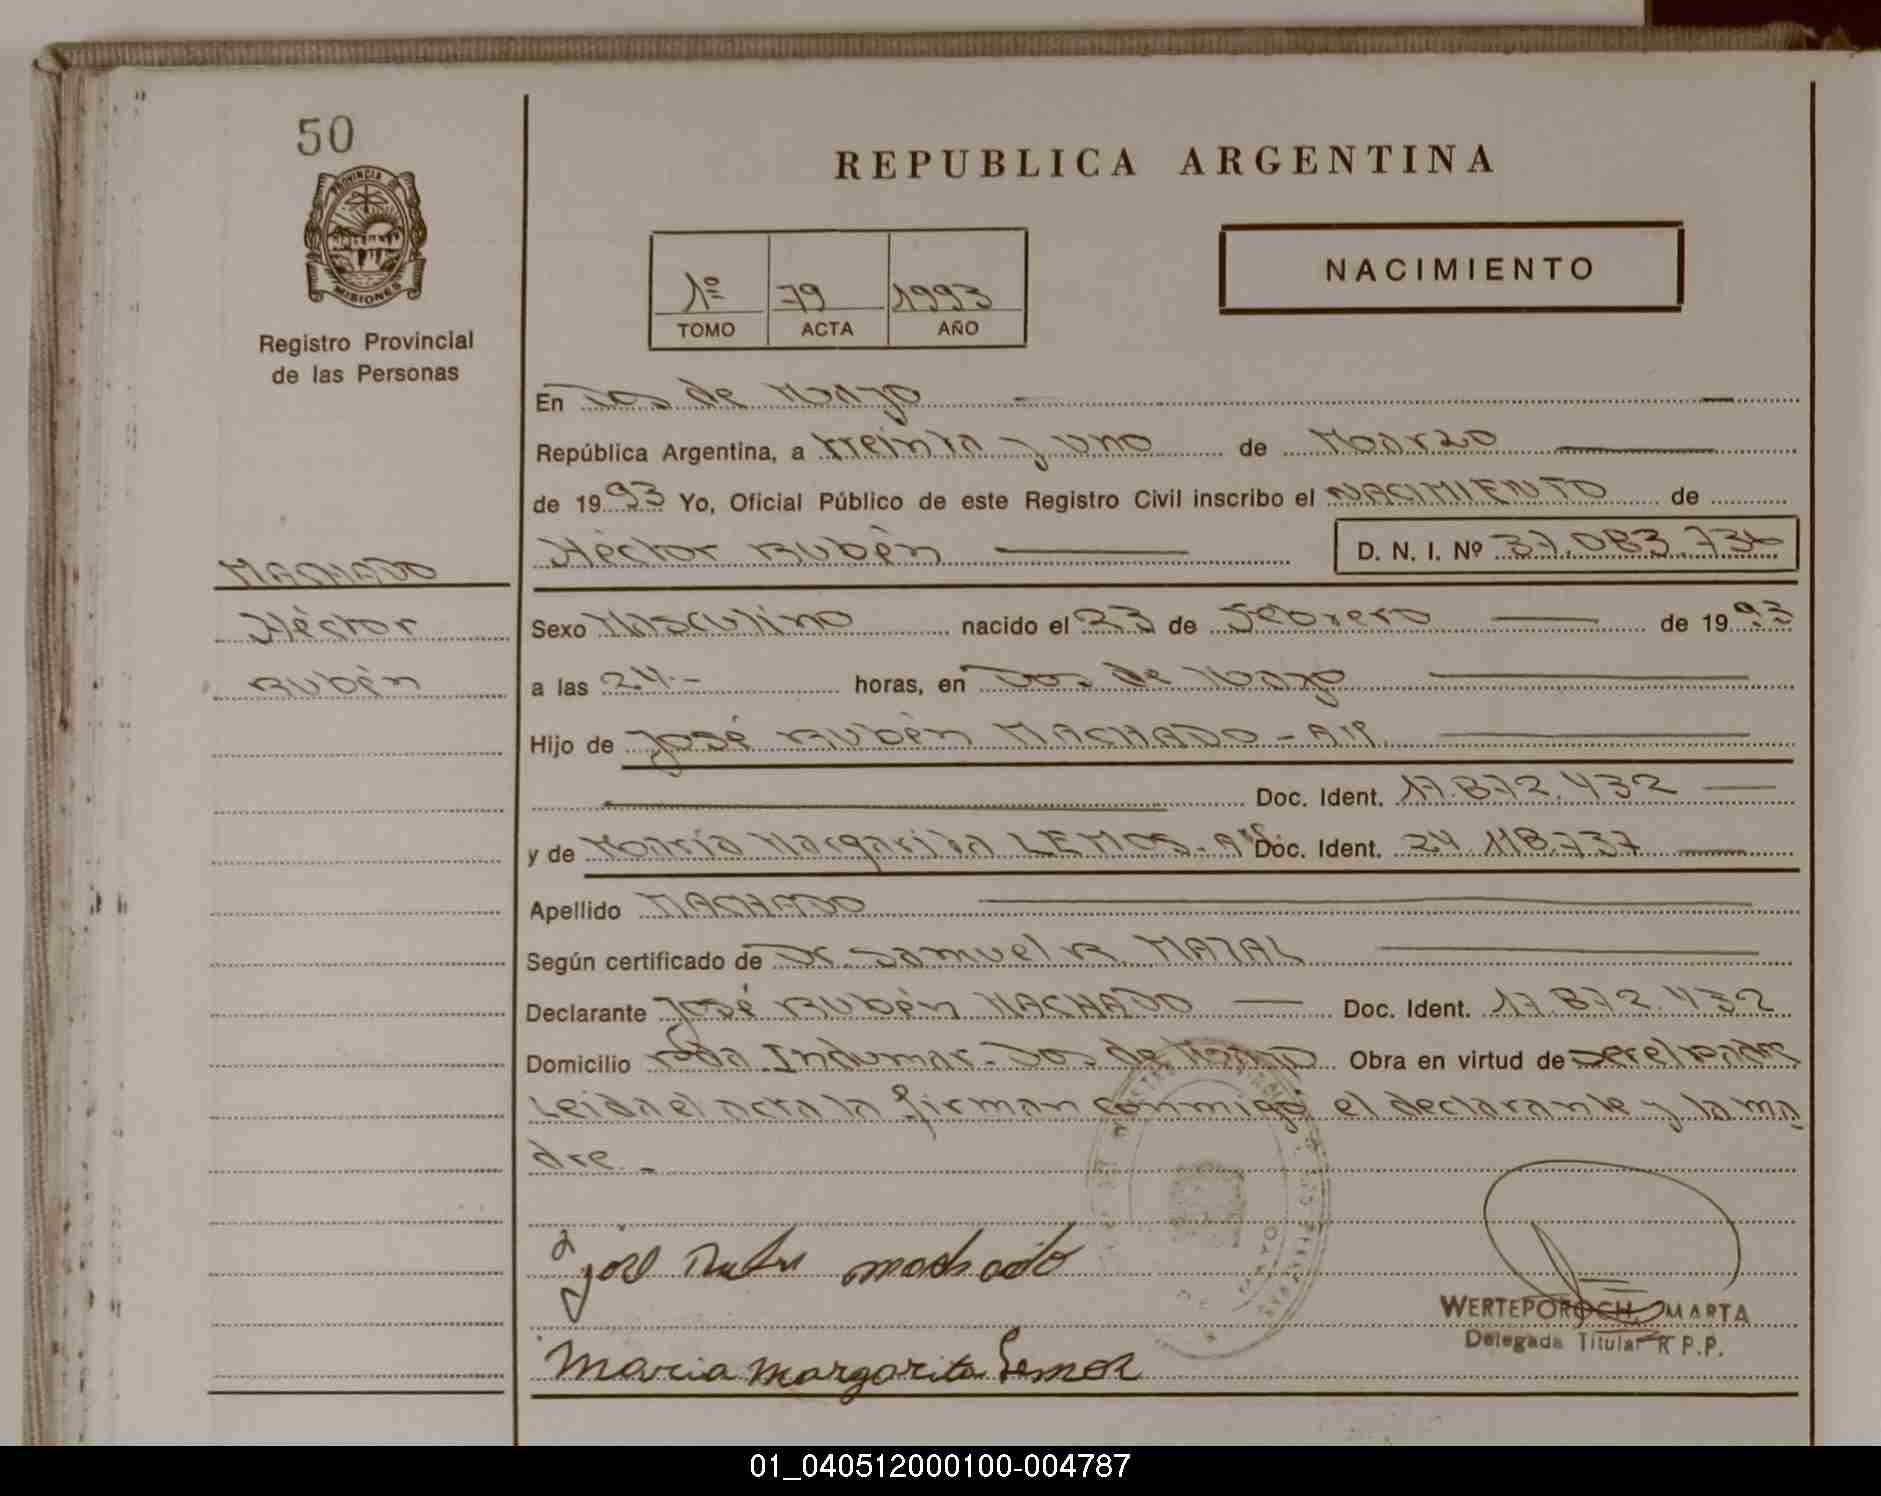 50
REPUBLICA ARGENTINA
PROVINCIA DE
MISIONES
Registro Provincial
de las Personas
1º 79 1993
TOMO ACTA AÑO
NACIMIENTO
En Dos de Mayo
República Argentina, a treinta y uno de Marzo
de 1993 Yo, Oficial Público de este Registro Civil inscribo el NACIMIENTO de
Héctor Rubén D. N. I. Nº 37.083.736
MACHADO
Héctor
Rubén
Sexo Masculino nacido el 23 de Febrero de 1993
a las 24.- horas, en Dos de Mayo
Hijo de José Rubén MACHADO - Ar.
Doc. Ident. 17.872.432
y de María Margarita LEMOS - Doc. Ident. 24.118.737
Apellido MACHADO
Según certificado de Dr. Samuel R.
Declarante José Rubén MACHADO Doc. Ident. 17.872.432
Domicilio Indumar - Dos de Mayo Obra en virtud de
Leida el acta la firman conmigo el declarante y la ma
dre.-
José Ruben machado
Maria Margarita Lemos
WERTEPOROCH, MARTA
Delegada Titular R P.P.
01_040512000100-004787